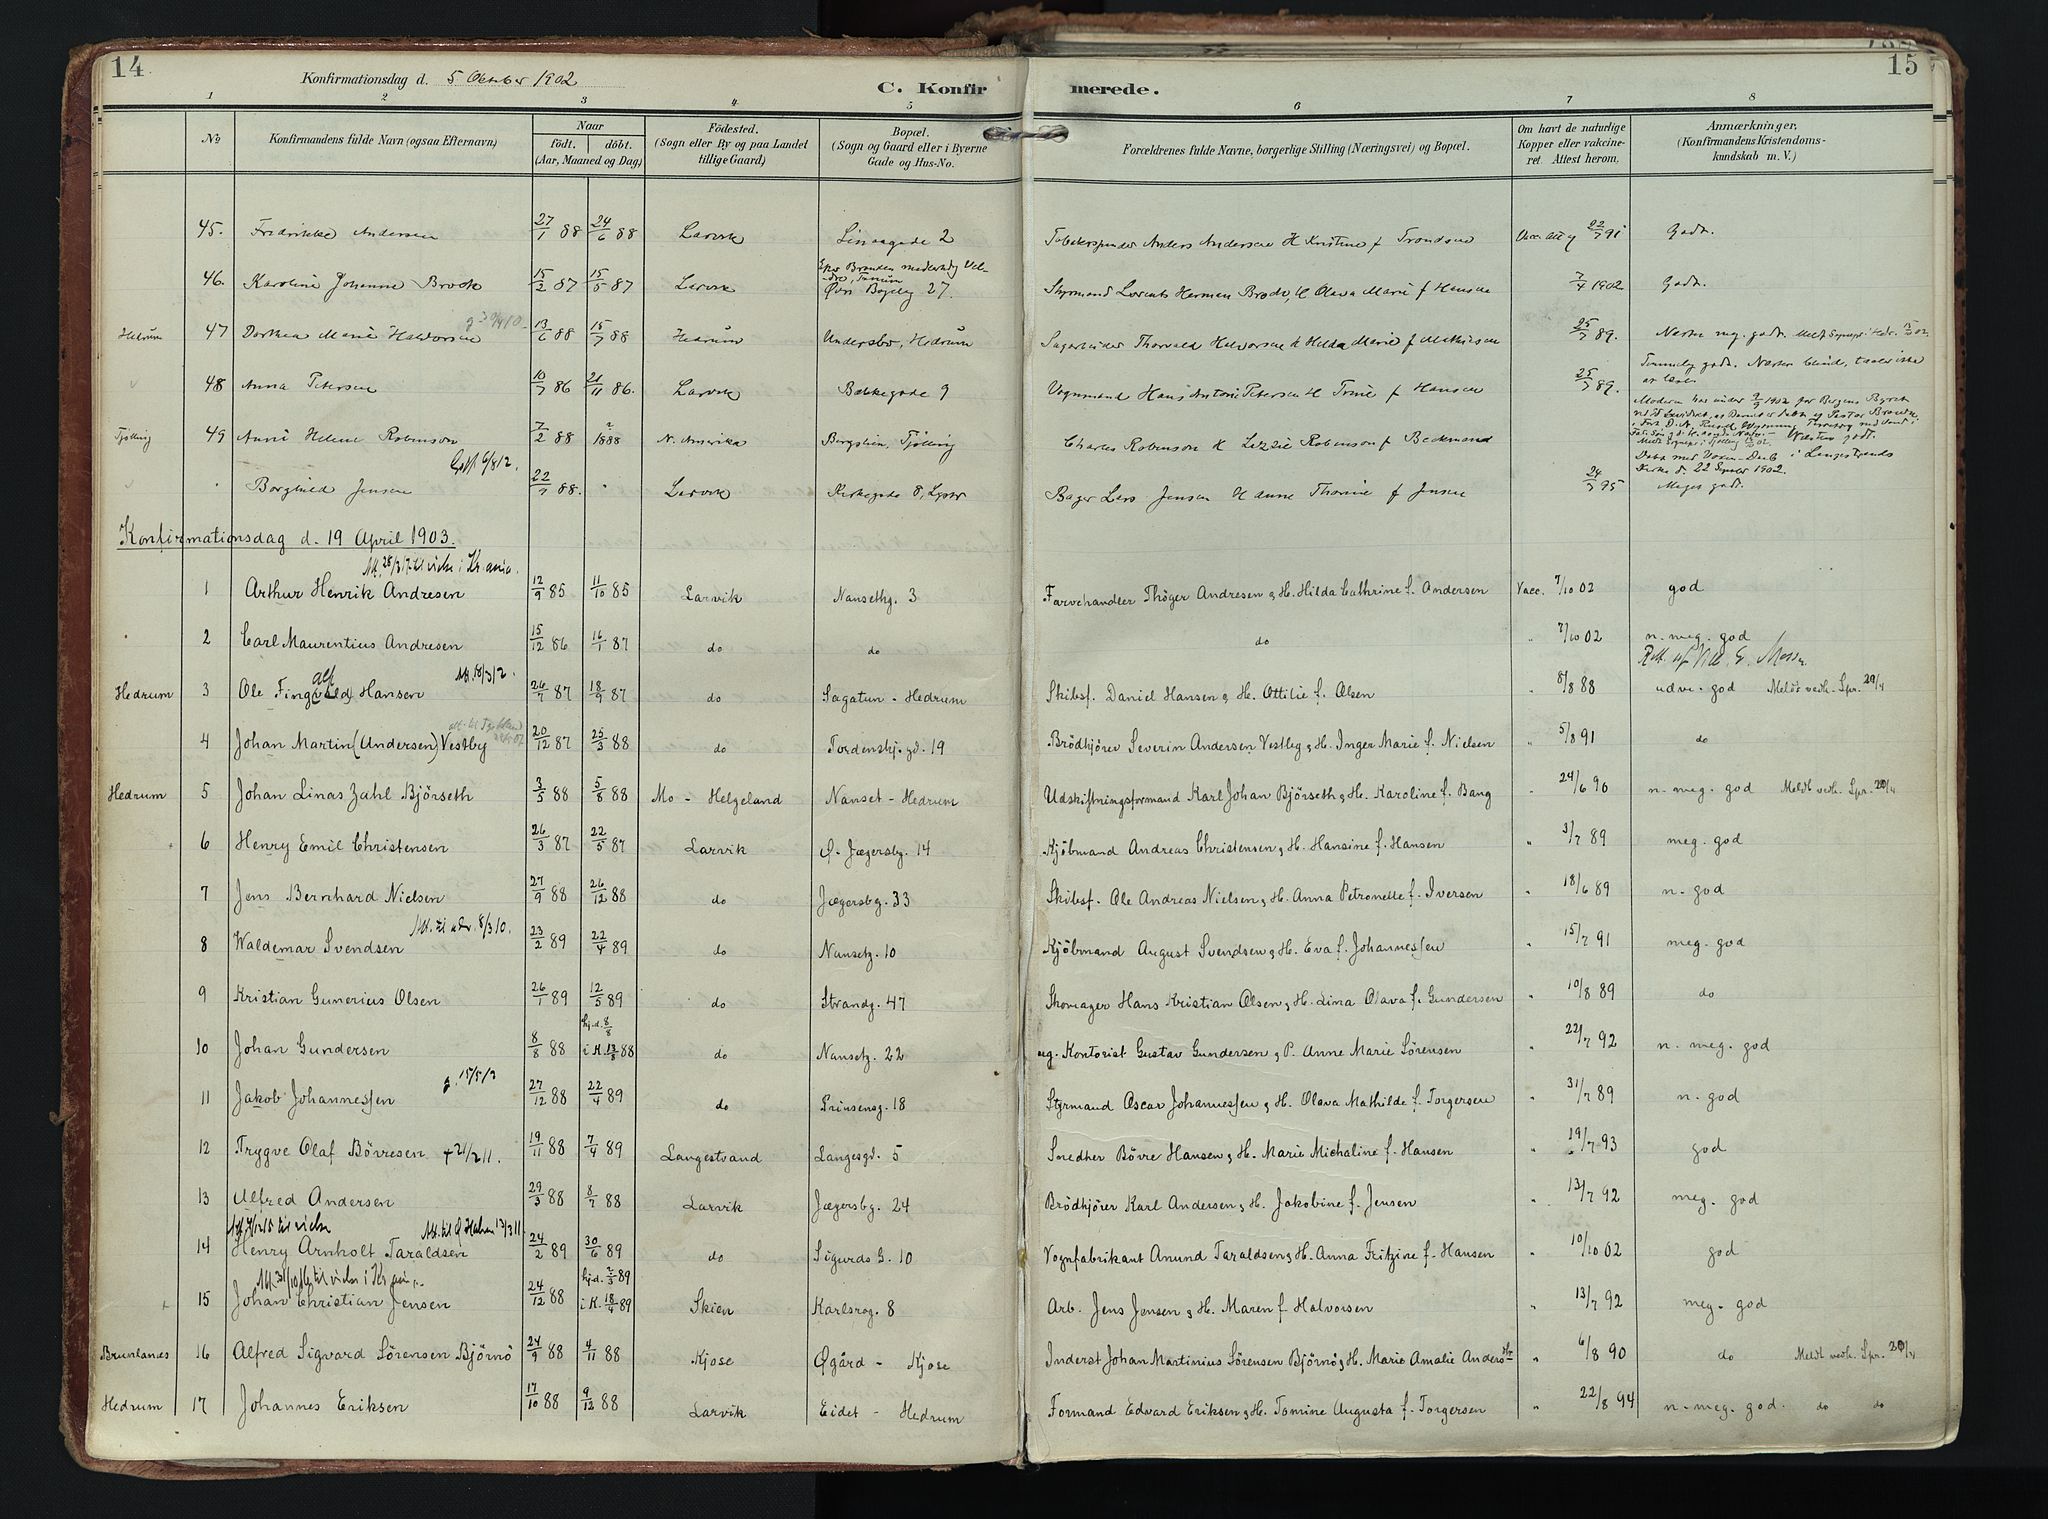 14
Konfirmationsdag d. 5 Oktober 1902
C. Konfirmerede.
15
1 2 3 4 5 6 7 8
No
Konfirmandens fulde Navn (ogsaa Efternavn)
Naar
födt. döbt.
(Aar, Maaned og Dag)
Födested.
(Sogn eller By og paa Landet tillige Gaard)
Bopæl.
(Sogn og Gaard eller i Byerne Gade og Hus-No.
Forældrenes fulde Navne, borgerlige Stilling (Næringsvei) og Bopæl.
Om havt de naturlige Kopper eller vakcineret Attest herom.
Anmærkninger,
(Konfirmandens Kristendomskundskab m. V.)
45. Fredrikke Andersen 27/1 88 24/6 88 Larvik Linaagade 2 Anders Andersen H Kristine f Trondsen 22/7 91 Godt.
46. Karoline Johanne Brock 15/2 87 15/5 87 Larvik 27. Styrmand Herman H Olava Marie f Hansen 7/4 1902 Godt.
Hedrum 47 Dorthea Marie Halvorsen 13/6 88 15/7 88 Hedrum Undersbo, Hedrum Thorvald Halvorsen H Hilda Marie f Mathisen 25/7 89. Næsten meg. godt.
48 Anna Petersen 10/7 86 21/11 86. Larvik Bækkegade 9 Vognmand Hans Anton Petersen H Trine f Hansen 25/7 89. godt. Næsten blind, taaler ikke at læse
Tjölling 49 Anni Helene Robinson 7/2 88 1888 N. Amerika Tjölling Charles Robinson H Lizzie Robinson f Beckmand
Kirke d. 22 Septbr 1902.
Borghild Jensen 22/7 88. Larvik Kirkegade 8, Bager Lars Jensen H Anne Thorine f Jensen 24/7 95 Meget godt.
Konfirmationsdag d. 19 April 1903.
1 Arthur Henrik Andresen 12/9 85 11/10 85 Larvik Nansethg. 3 Farvehandler Thöger Andresen & H. Hilda Cathrine f. Andersen Vacc. 7/10 02 god
2 Carl Maurentius Andresen 15/12 86 16/1 87 do do do " 7/10 02 n. meg. god
Att. 18/3 12.
Hedrum 3 Ole Fingvald Hansen 26/7 87 18/9 87 do Sagatun - Hedrum Skibsf. Daniel Hansen & H. Ottilie f. Olsen " 8/8 88 udm. god Meldt vedk. Spr. 29/4
4 Johan Martin (Andersen) Vestby 20/12 87 25/3 88 do Tordenskj. gd. 19 Brödkjörer Severin Andersen Vestby & H. Inger Marie f. Nielsen " 5/8 91 do
Hedrum 5 Johan Linas Zahl Björseth 3/5 88 5/8 88 Mo - Helgeland Nanset - Hedrum Udskiftningsformand Karl Johan Björseth & H. Karoline f. Bang " 24/6 90 n. meg. god Meldt vedk. Spr. 20/4
6 Henry Emil Christensen 26/3 87 22/5 87 Larvik Ø. Jægersbg. 14 Kjöbmand Andreas Christensen & H. Hansine f. Hansen " 3/7 89 meg. god
7 Jens Bernhard Nielsen 27/9 88 26/12 88 do Jægersbg. 33 Skibsf. Ole Andreas Nielsen & H. Anna Petronelle f. Iversen " 18/6 89 n. god
8 Waldemar Svendsen 23/2 89 22/4 89 do Nansetg. 10 Kjöbmand August Svendsen & H. Eva f. Johannessen " 15/7 91 meg. god
9 Kristian Gunerius Olsen 26/1 89 12/5 89 do Strandg. 47 Skomager Hans Kristian Olsen & H. Lina Olava f. Gundersen " 10/8 89 do
10 Johan Gundersen 8/8 88 hj.d. 8/8 i K. 13/8 88 do Nansetg. 22 ug. Kontorist Gustav Gundersen & P. Anne Marie Sörensen " 22/7 92 n. meg. god
11 Jakob Johannessen 27/12 88 22/4 89 do Prinsensg. 18 Styrmand Oscar Johannessen & H. Olava Mathilde f. Torgersen " 31/7 89 n. god
12 Trygve Olaf Bövresen + 21/2 11. 19/11 88 7/4 89 Langestrand Langesgd. 5 Snedker Bövre Hansen & H. Marie Michaline f. Hansen " 19/7 93 god
13 Alfred Andersen 29/3 88 8/7 88 Larvik Jægersbg. 24 Brödkjörer Karl Andersen & H. Jakobine f. Jensen " 13/7 92 meg. god
14 Henry Arnholt Taraldsen 24/2 89 30/6 89 do Sigurds G. 10 Vognfabrikant Anund Taraldsen & H. Anna Fritzine f. Hansen " 10/10 02 god
15 Johan Christian Jensen 24/12 88 hj.d. 2/3 89 i K. 18/4 89 Skien Karlsrog. 8 Arb. Jens Jensen & H. Maren f Halvorsen " 13/7 92 meg. god
Brunlanæs 16 Alfred Sigvard Sörensen Björnö 24/9 88 4/11 88 Kjose Øgård - Kjose Inderst Johan Martinius Sörensen Björnö & H. Marie Amalie Andersdtr " 6/8 90 do Meldt vedk. Spr. 20/4
Hedrum 17 Johannes Eriksen 17/10 88 9/12 88 Larvik Eidet - Hedrum Formand Edvard Eriksen & H. Tomine Augusta f. Torgersen " 22/8 94 n. meg. god. do do